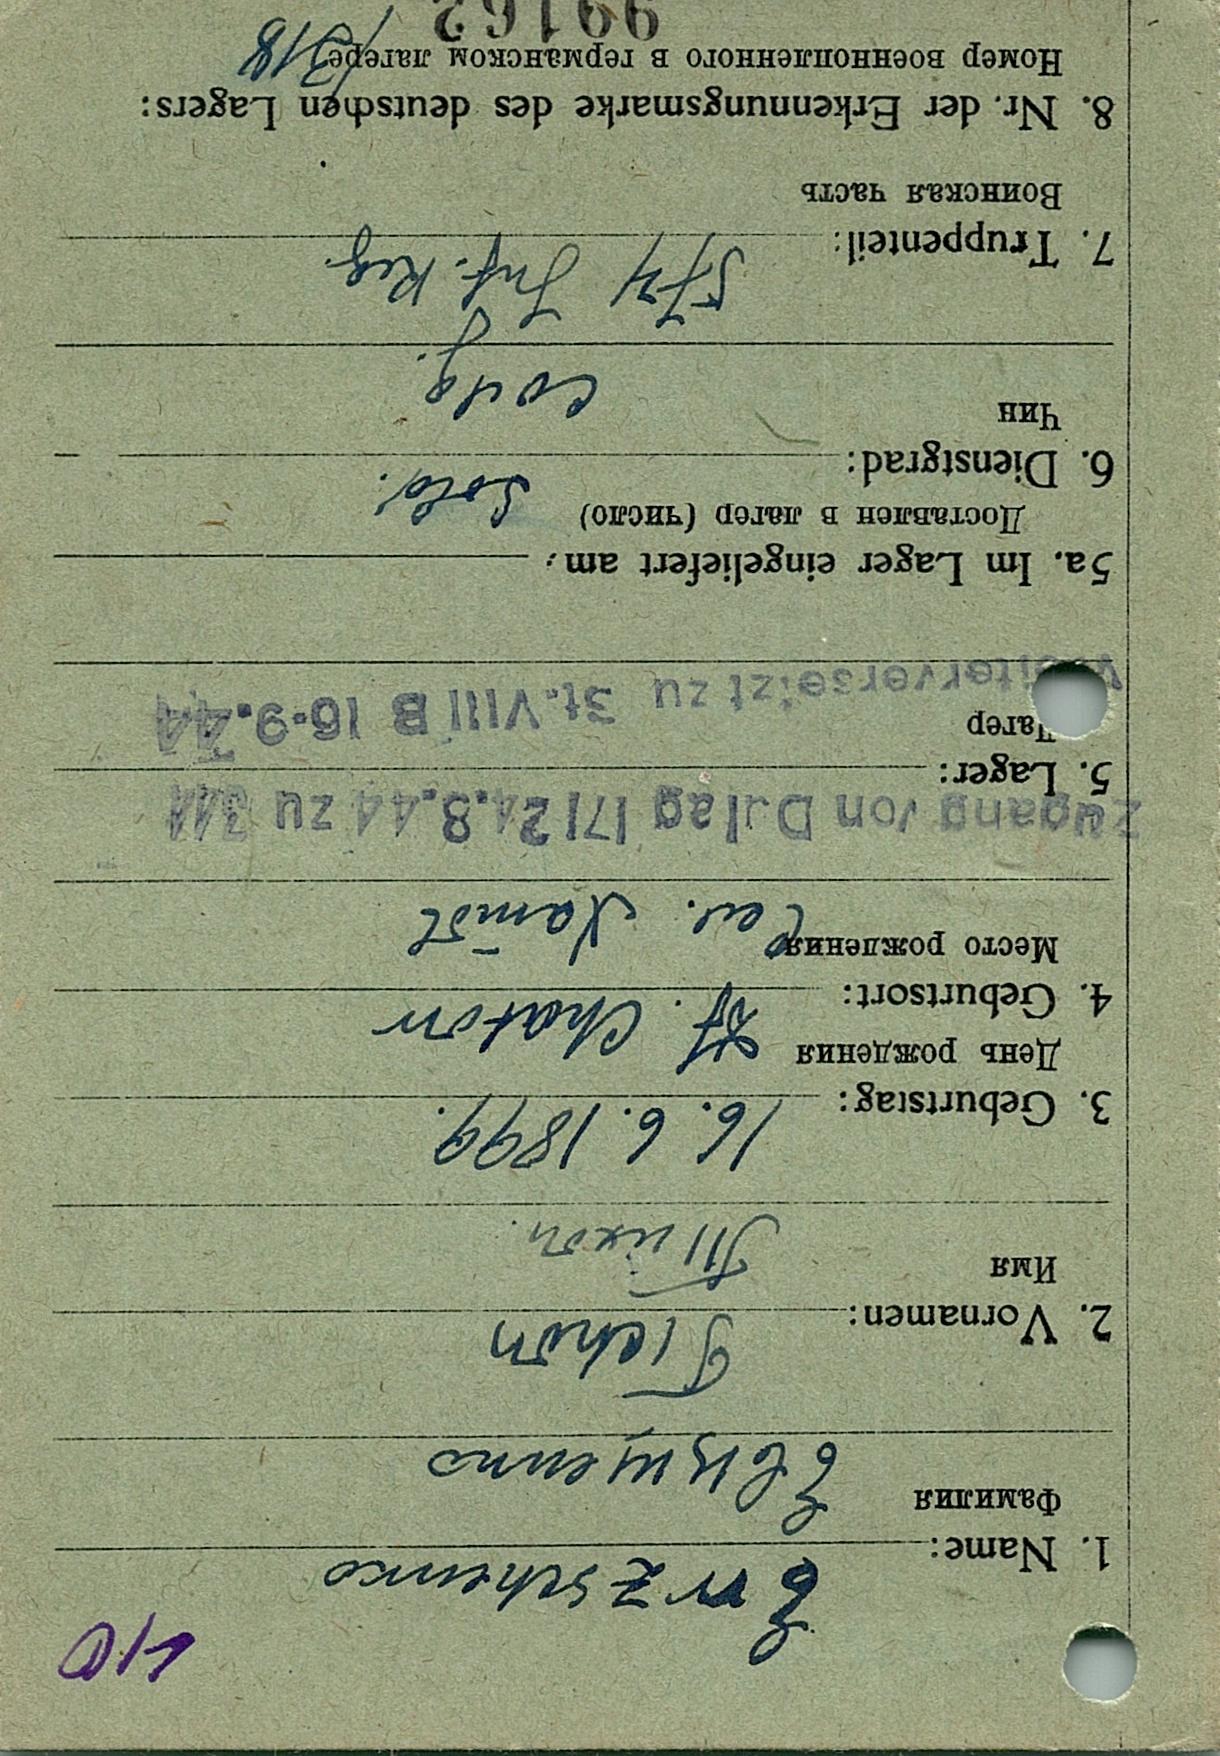 1. Name: Ewzschenko
Фамилия Евзщенко
2. Vornamen: Tichon
Имя Тихон.
3. Geburtstag: 16. 6. 1899.
День рождения
4. Geburtsort: Df. Chaton
Место рождения
Zugang von Dulag 17/21.8.44 zu 344
5. Lager:
Лагер
weiterversetzt zu St. VIII B 16.9.44
5a. Im Lager eingeliefert am:
Доставлен в лагер (число)
6. Dienstgrad: Sold.
Чин солд.
7. Truppenteil: 574 Inf. Reg.
Воинская часть
8. Nr. der Erkennungsmarke des deutschen Lagers:
Номер военнопленного в германском лагере /318
99162